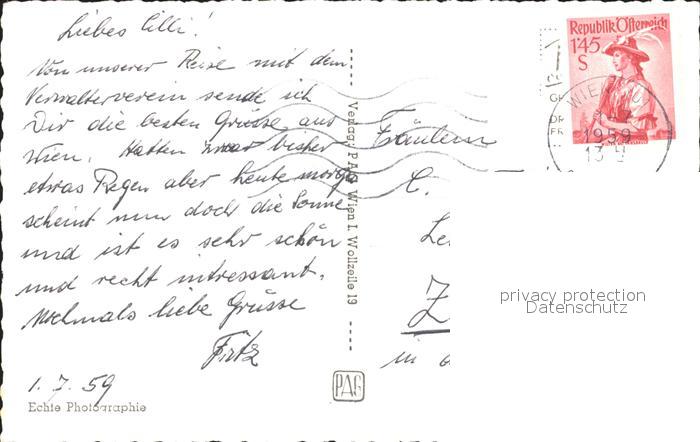 Liebes Cilli!
Von unserer Reise mit dem
Verwalterverein sende ich
Dir die besten Grüsse aus
Wien. Hatten zwar bisher
etwas Regen aber heute morgen
scheint nun doch die Sonne
und ist es sehr schön
und recht intressant.
Nochmals liebe Grüsse
Fritz
1. 7. 59
Echte Photographie
Verlag: PAG, Wien I, Wollzeile 19
PAG
Republik Österreich
1'45
S
WIEN
1959
13
Fräulein
C.
Z
in
privacy protection
Datenschutz